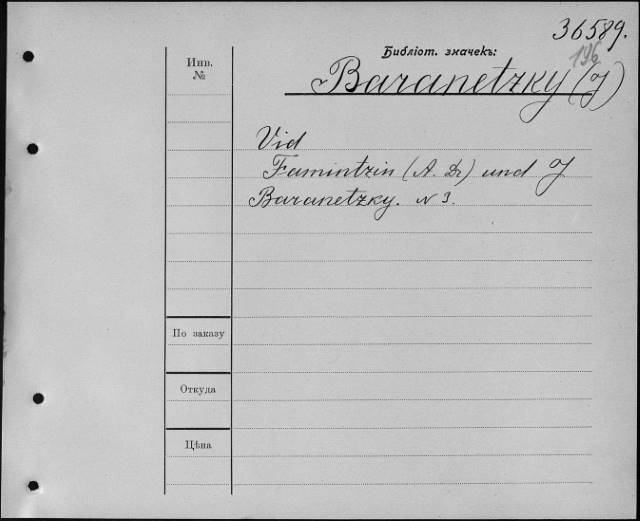 36589.
Библіот. значекъ:
196
Baranetzky (J)
Инв.
№
Vid
Famintzin (A. Dr) und J
Baranetzky. N 3.
По заказу
Откуда
Цѣна